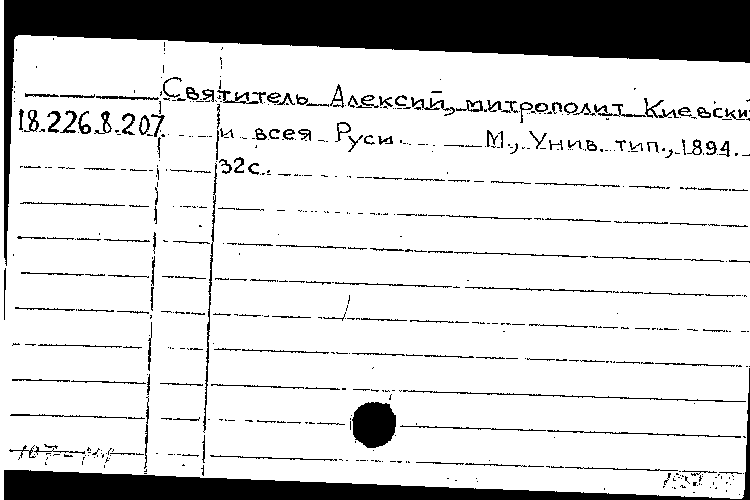 Святитель Алексий, митрополит Киевски
18.226.8.207 и всея Руси. М., Унив. тип., 1894.
32с.